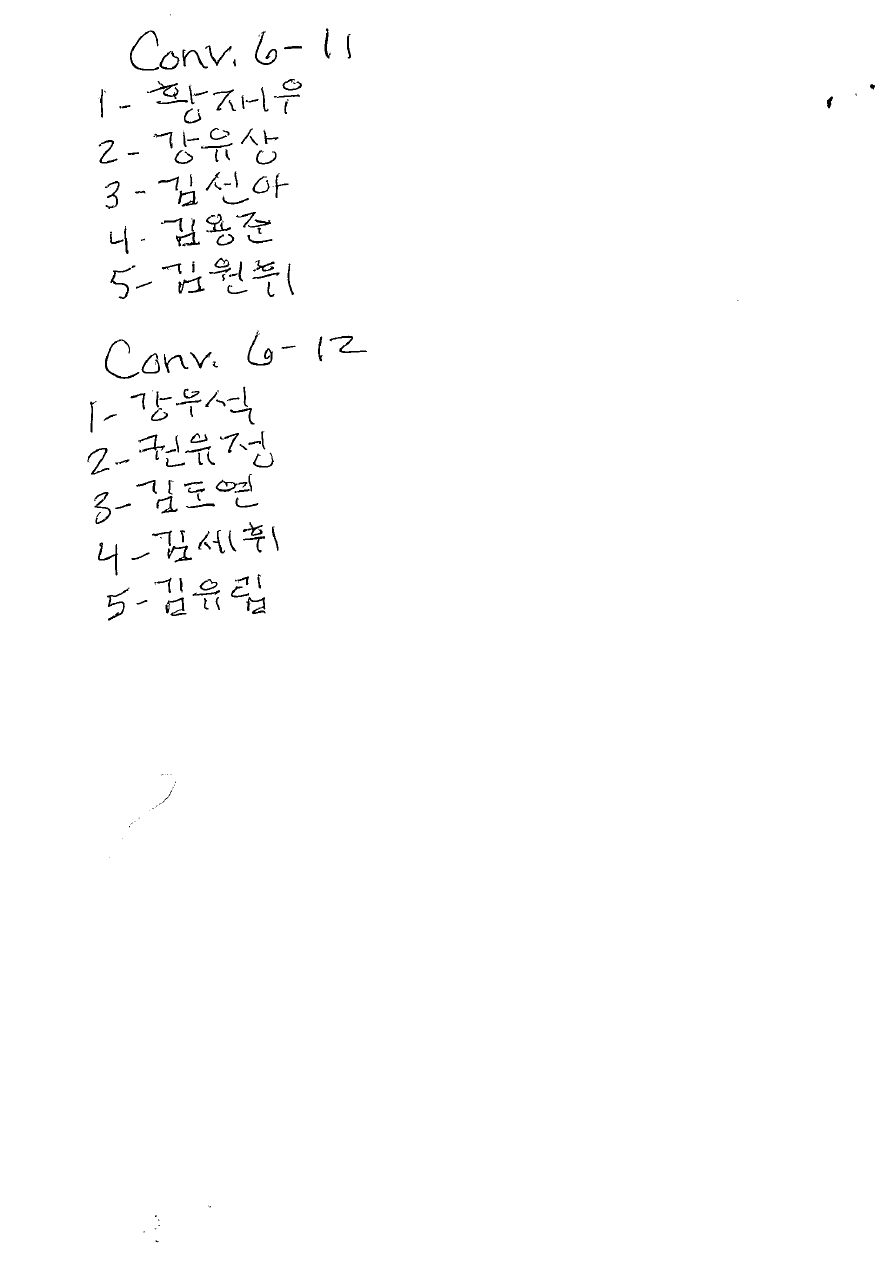 Conv. 6-11
1- 황재우
2- 강유상
3- 김선아
4- 김용준
5- 김원휘
Conv. 6-12
1- 강우석
2- 권유정
3- 김도연
4- 김세휘
5- 김유림